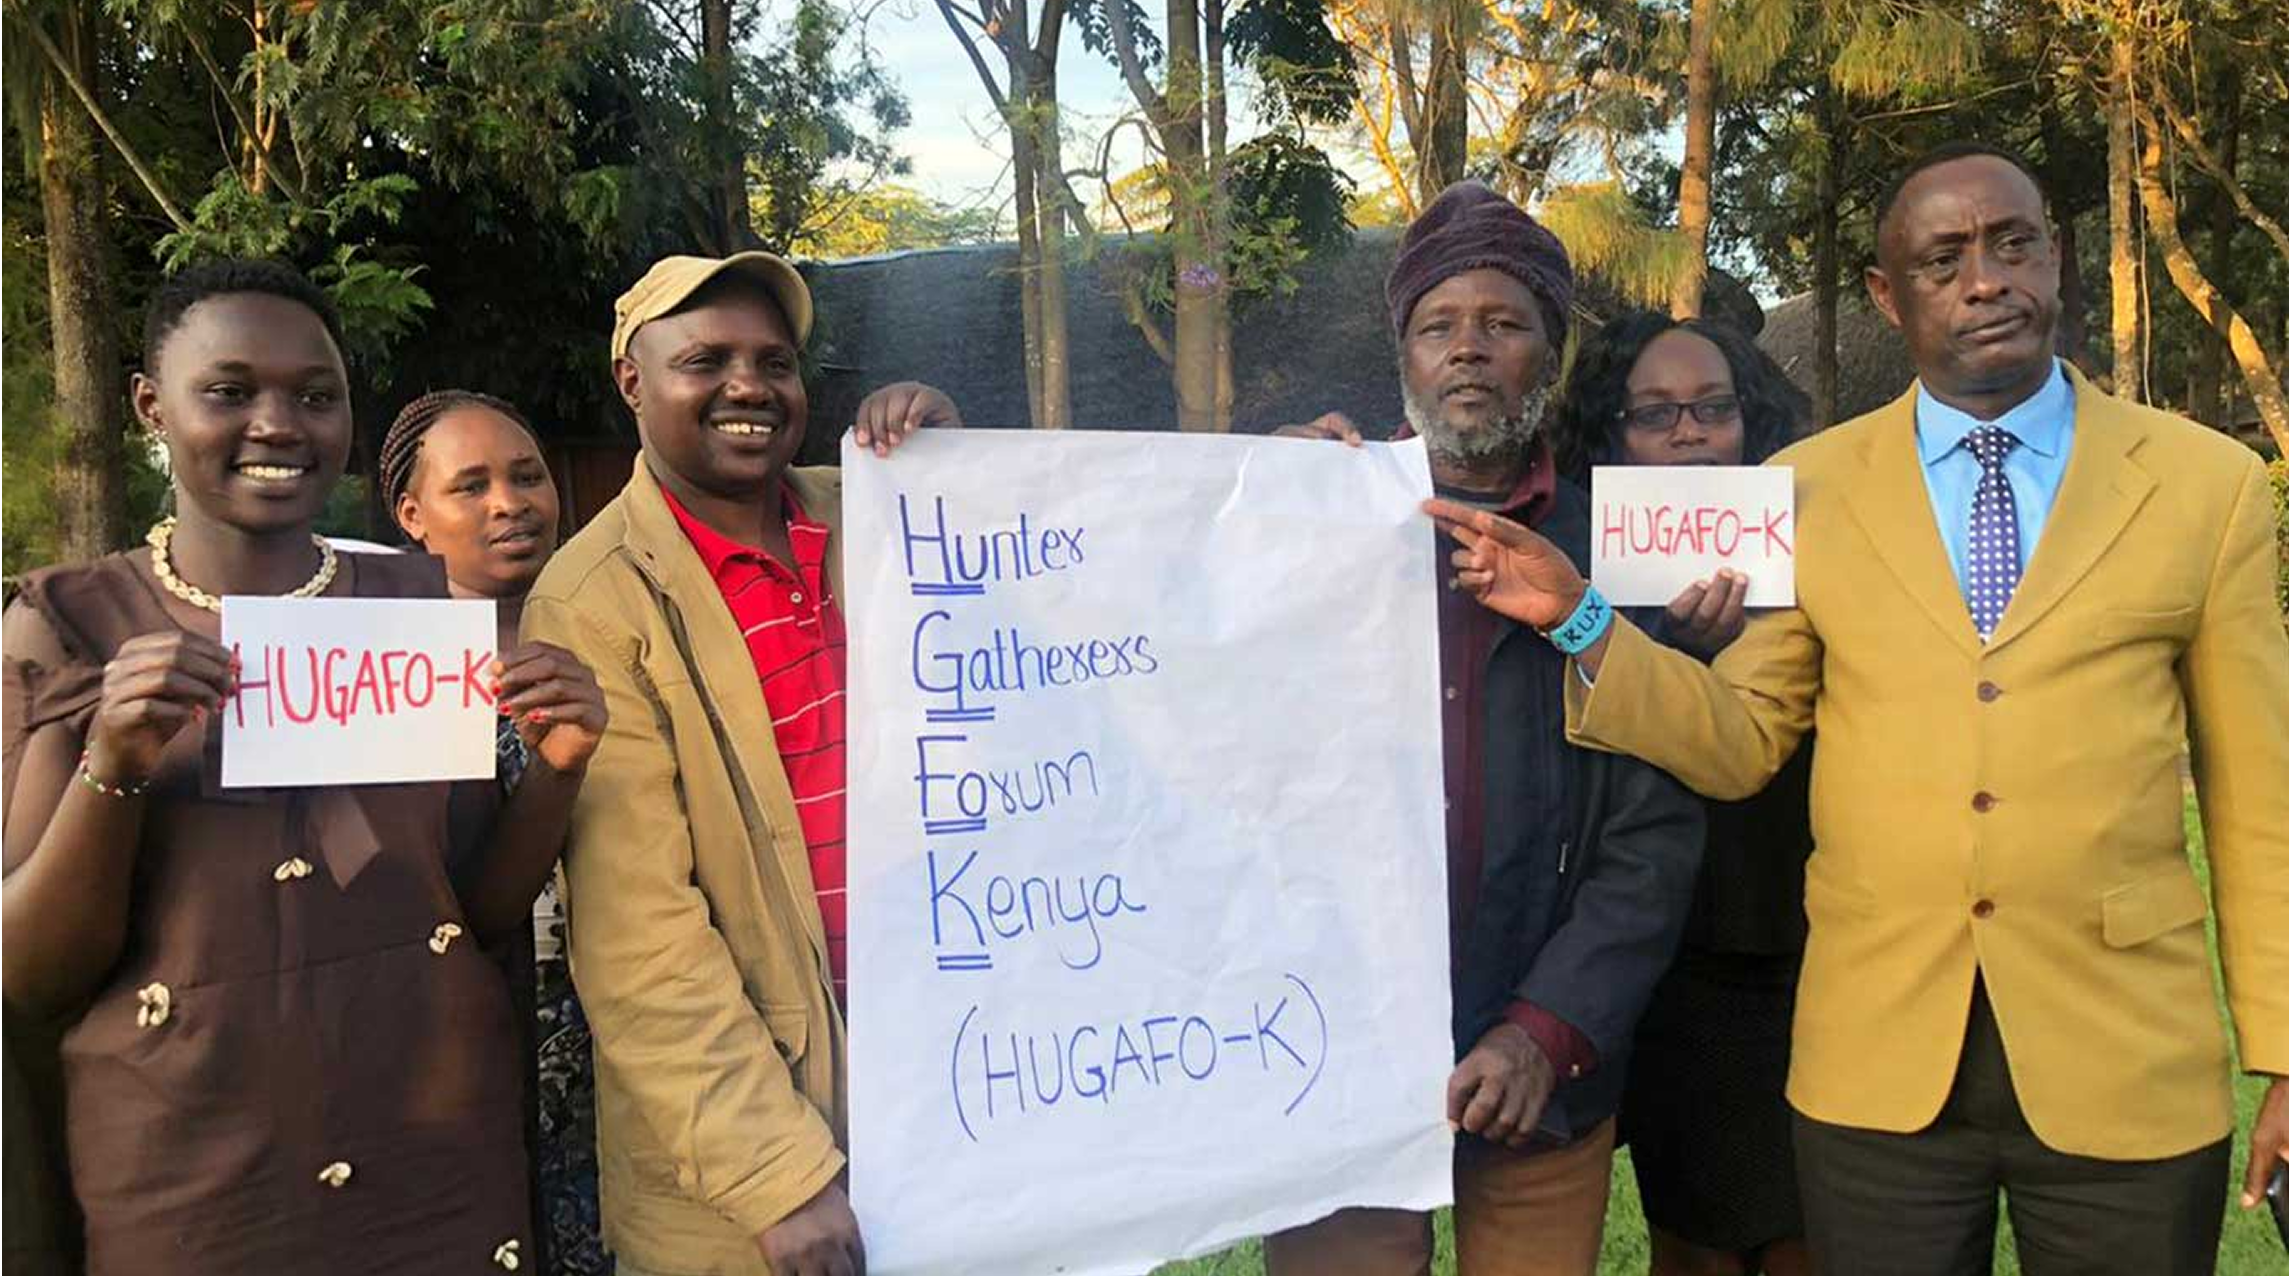 Hunter
Gatherers
Forum
Kenya
(HUGAFO-K)
HUGAFO-K
HUGAFO-K